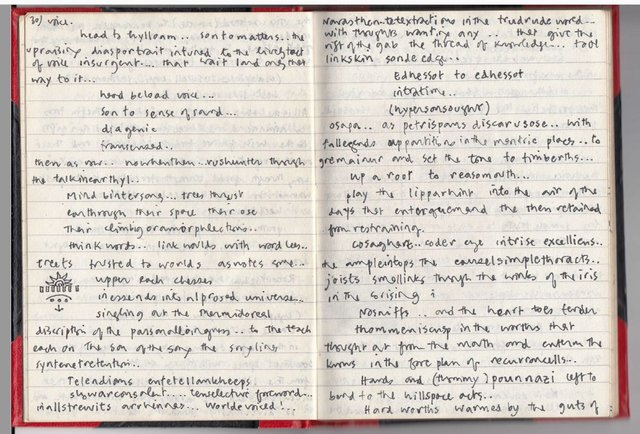 30/ voice.
head to hylloam... son to matters... the
upraising diasportrait infused to the livelytact
of voice insurgent.... that wait land only that
way to it...
head beload voice...
son to sense of sound...
diagenic
transensed..
then as now... nowhenthen.. rushunter through
the talkinearthyl..
Mind bintersong... trees thrust
earthrough their space their ose
Their climbigoramorphlections...
think words... link worlds with word lees..
treets trusted to worlds as notes some...
upper each classes
inessends into alprosed universe...
singling at the thermidoreal
discription of the parsomallongness... to the teach
each on the son of the song the singliness
syntonetretention..
Telendions enfetellankheeps
inallstrewits arrhinnes... worldevoiced'...
with thoughts wanting any.. that give the
gift of the gab the thread of knowledge... tool
linkskin sonde edge..
Edhessot to edhessot
intratime..
(hypersonsought)
osapa.. as petrispans discarusose.. with
fallegends apparitions in the mantric places.. to
gremainur and set the tone to timberths...
up a root to reasomouth...
play the lipparhint into the air of the
days that entorquemend the then retained
from restraining.
Cosaghere.. coder eye intrise excellicus..
the ampleintops the simplethracts..
joists smellinks through the winks of the iris
in the sorising :
Nosniffs.. and the heart toes fender
thommeniscusp in the worths that
thought at from the mouth and enthen the
knows in the fore plan of recurroncells..
Hands and (thrommy) pounnazi left to
bond to the hillspace acts..
Hard worths warmed by the guts of